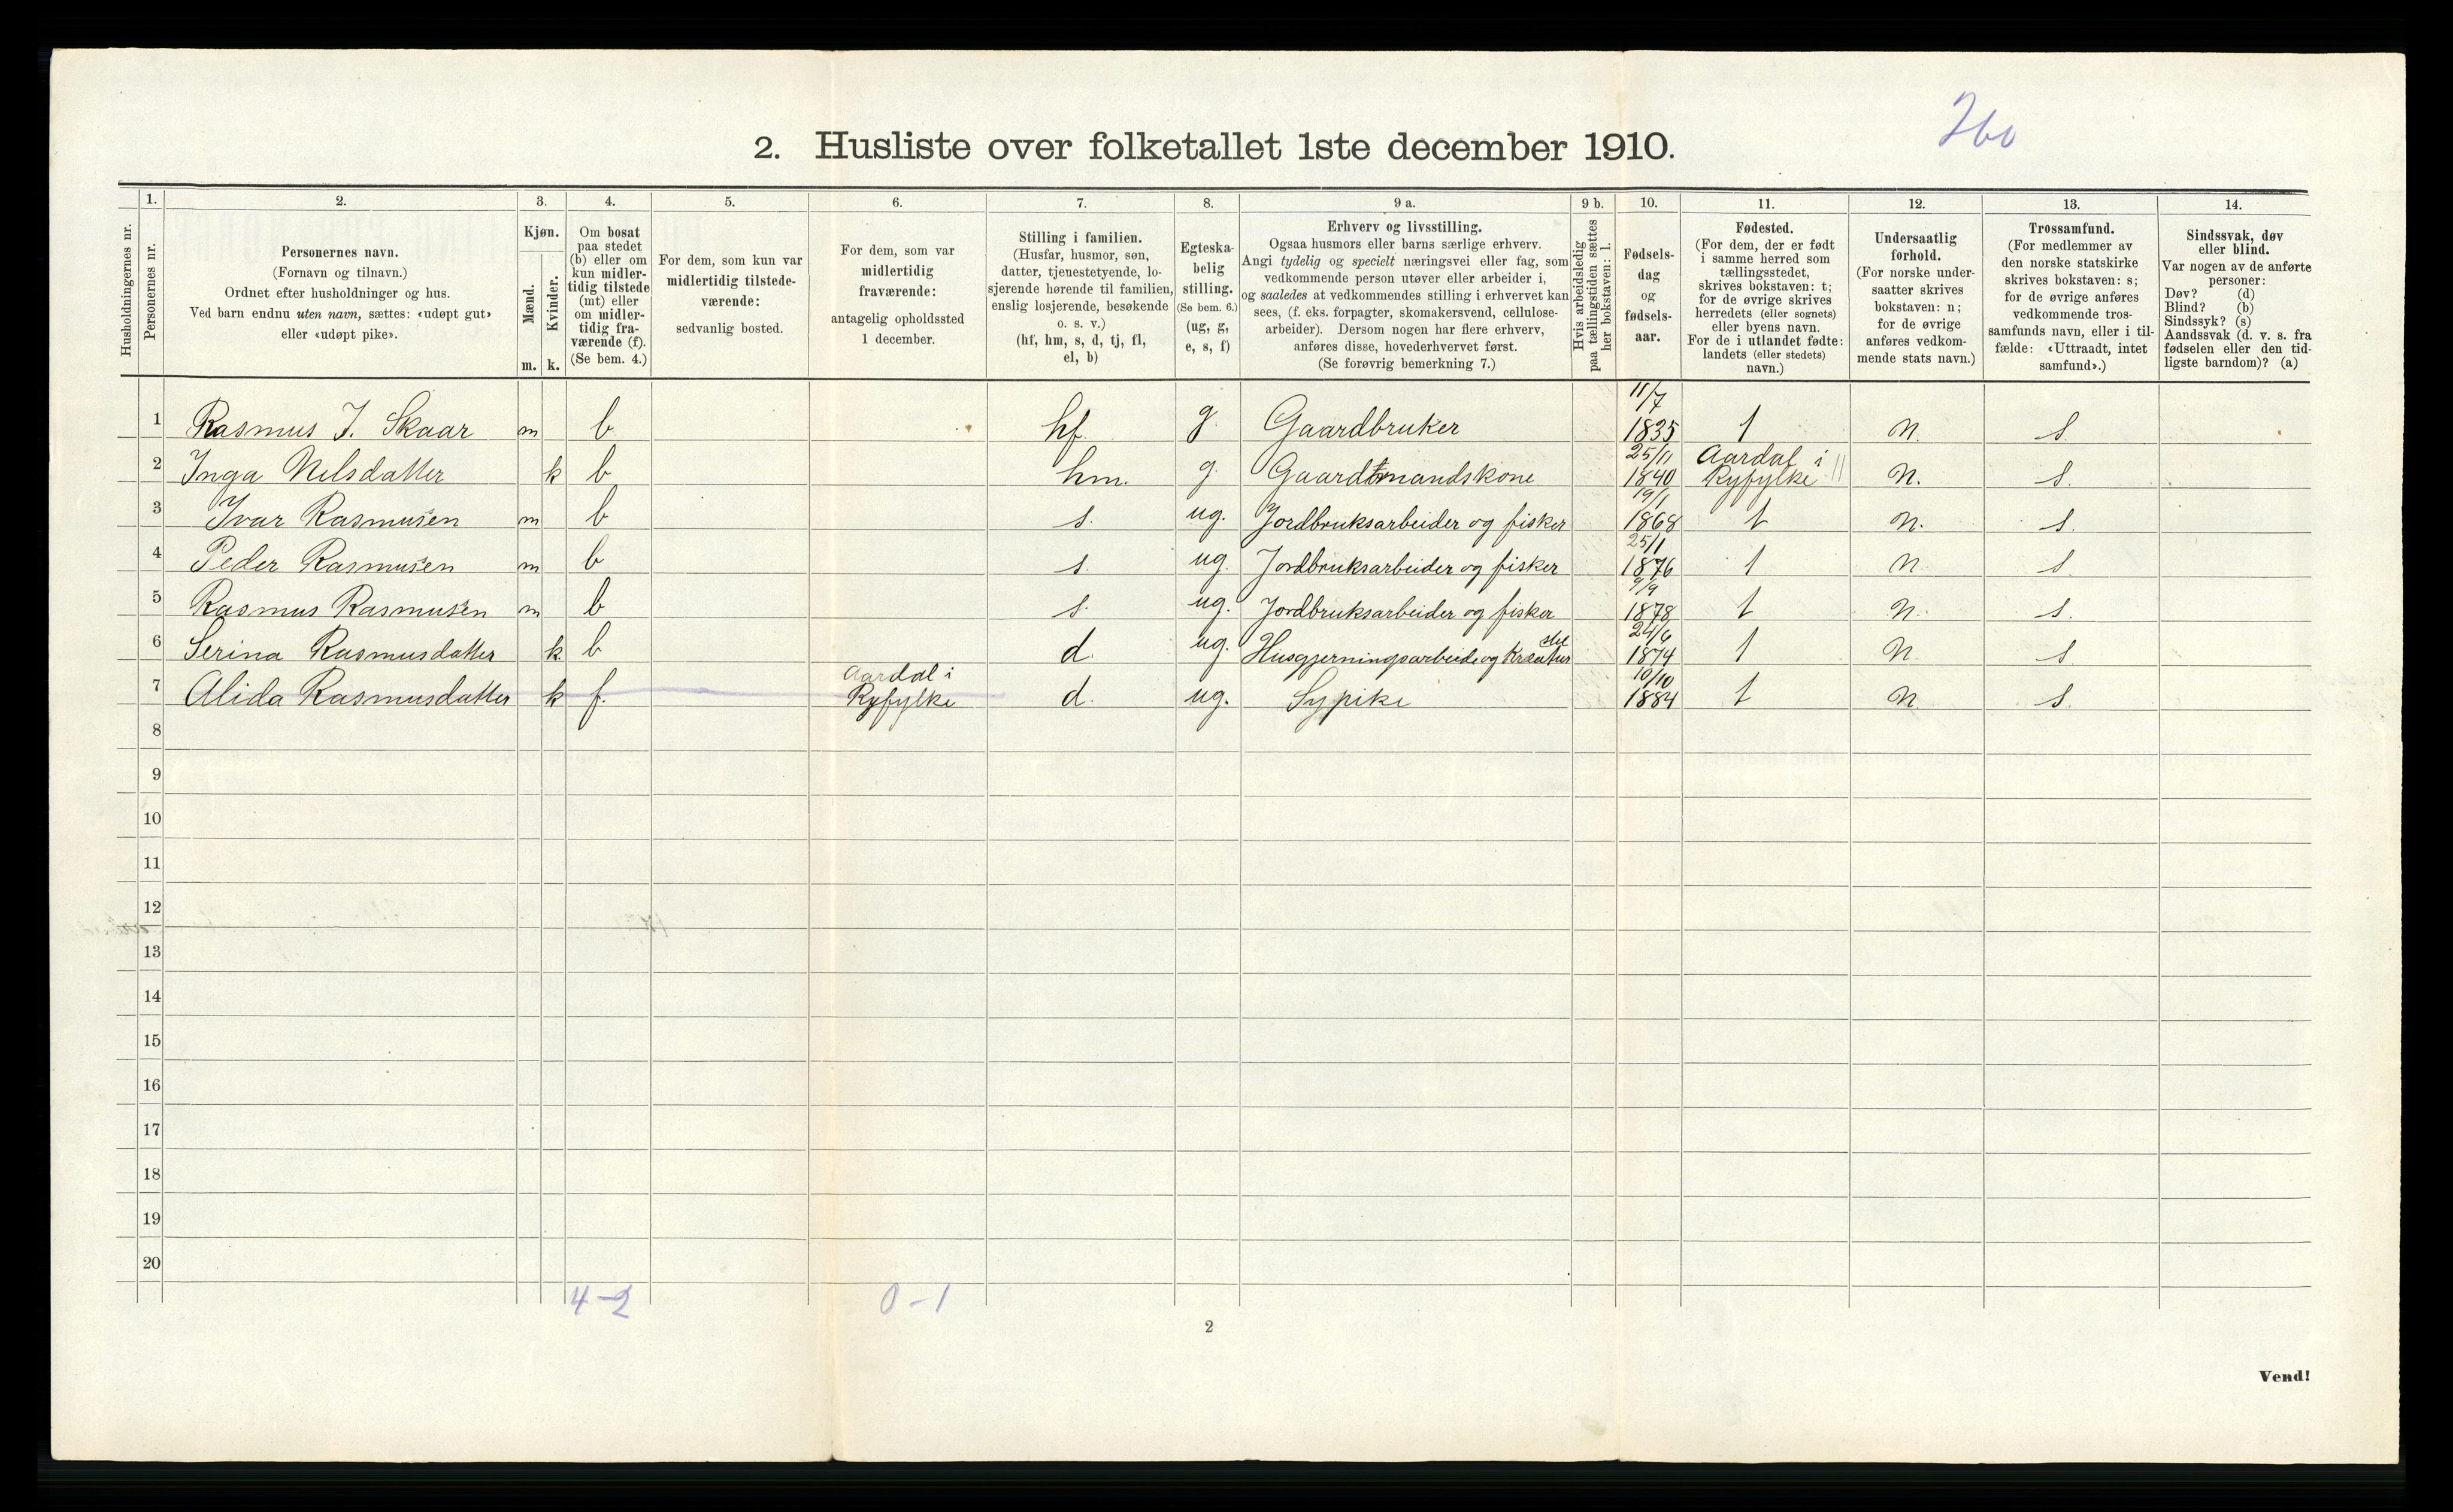 260
2. Husliste over folketallet 1ste december 1910.
Husholdningernes nr.
1.
Personernes nr.
2.
Personernes navn.
(Fornavn og tilnavn.)
Ordnet efter husholdninger og hus.
Ved barn endnu uten navn, sættes: «udøpt gut»
eller «udøpt pike».
3.
Kjøn.
Mænd.
Kvinder.
m. k.
4.
Om bosat
paa stedet
(b) eller om
kun midler-
tidig tilstede
(mt) eller
om midler-
tidig fra-
værende (f).
(Se bem. 4.)
5.
For dem, som kun var
midlertidig tilstede-
værende:
sedvanlig bosted.
6.
For dem, som var
midlertidig
fraværende:
antagelig opholdssted
1 december.
7.
Stilling i familien.
(Husfar, husmor, søn,
datter, tjenestetyende, lo-
sjerende hørende til familien,
enslig losjerende, besøkende
o. s. v.)
(hf, hm, s, d, tj, fl,
el, b)
8.
Egteska-
belig
stilling.
(Se bem. 6.)
(ug, g,
e, s, f)
9 a.
Erhverv og livsstilling.
Ogsaa husmors eller barns særlige erhverv.
Angi tydelig og specielt næringsvei eller fag, som
vedkommende person utøver eller arbeider i,
og saaledes at vedkommendes stilling i erhvervet kan
sees, (f. eks. forpagter, skomakersvend, cellulose-
arbeider). Dersom nogen har flere erhverv,
anføres disse, hovederhvervet først.
(Se forøvrig bemerkning 7.)
9 b.
Hvis arbeidsledig
paa tællingstiden sættes
her bokstaven: l.
10.
Fødsels-
dag
og
fødsels-
aar.
11.
Fødested.
(For dem, der er født
i samme herred som
tællingsstedet,
skrives bokstaven: t;
for de øvrige skrives
herredets (eller sognets)
eller byens navn.
For de i utlandet fødte:
landets (eller stedets)
navn.)
12.
Undersaatlig
forhold.
(For norske under-
saatter skrives
bokstaven: n;
for de øvrige
anføres vedkom-
mende stats navn.)
13.
Trossamfund.
(For medlemmer av
den norske statskirke
skrives bokstaven: s;
for de øvrige anføres
vedkommende tros-
samfunds navn, eller i til-
fælde: «Uttraadt, intet
samfund».)
14.
Sindssvak, døv
eller blind.
Var nogen av de anførte
personer:
Døv? (d)
Blind? (b)
Sindssyk? (s)
Aandssvak (d. v. s. fra
fødselen eller den tid-
ligste barndom)? (a)
1 Rasmus I. Skaar m b hf. g. Gaardbruker 11/7 1835 t n. s.
2 Inga Nilsdatter k b hm. g. Gaardmandskone 25/11 1840 Aardal i Ryfylke n. s.
3 Ivar Rasmusen m b s. ug. Jordbruksarbeider og fisker 19/1 1868 t n. s.
4 Peder Rasmusen m b s. ug. Jordbruksarbeider og fisker 25/1 1876 t n s.
5 Rasmus Rasmusen m b s. ug. Jordbruksarbeider og fisker 9/9 1878 t n. s.
6 Serina Rasmusdatter k b d. ug. Husgjerningsarbeide og Kreaturstel 24/6 1874 t n. s.
7 Alida Rasmusdatter k f. Aardal i Ryfylke d. ug. Sypike 10/10 1884 t n. s.
8
9
10
11
12
13
14
15
16
17
18
19
20
4-2 0-1
2
Vend!